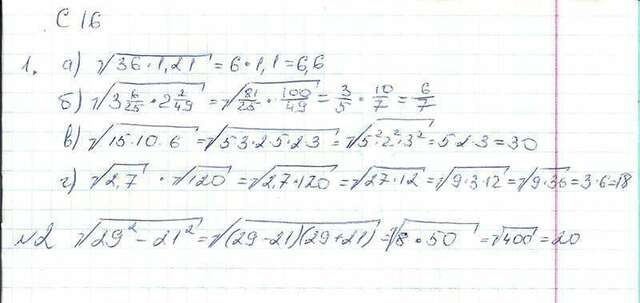 С 16
1. а) √36·1,21 = 6·1,1 = 6,6
б) √3 6/25 · 2 2/49 = √81/25 · 100/49 = 3/5 · 10/7 = 6/7
в) √15·10·6 = √5·3·2·5·2·3 = √5²·2²·3² = 5·2·3 = 30
г) √2,7 · √120 = √2,7·120 = √27·12 = √9·3·12 = √9·36 = 3·6 = 18
№2 √29² - 21² = √(29-21)(29+21) = √8·50 = √400 = 20